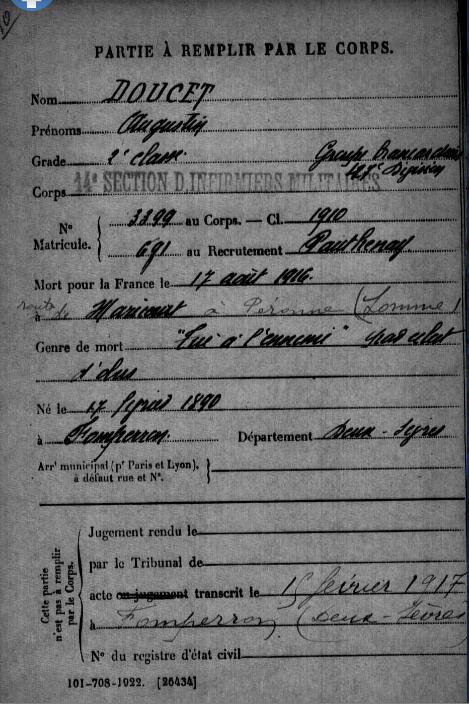 PARTIE À REMPLIR PAR LE CORPS.
Nom DOUCET
Prénoms Augustin
Grade 2e classe Groupe Brancardiers
Division
Corps 14e SECTION D INFIRMIERS MILITAIRES
No Matricule. 3399 au Corps. — Cl. 1910
691 au Recrutement Parthenay
Mort pour la France le 17 août 1916.
route de
à Maricourt à Péronne (Somme)
Genre de mort "Tué à l'ennemi" par éclat
d'obus
Né le 17 1890
à Fomperron. Département Deux-Sèvres
Arrt municipal (pr Paris et Lyon),
à défaut rue et No.
Cette partie n'est pas à remplir par le Corps.
Jugement rendu le
par le Tribunal de
acte ou jugement transcrit le 15 février 1917
à Fomperron (Deux-Sèvres
No du registre d'état civil
101-708-1922. [26434]